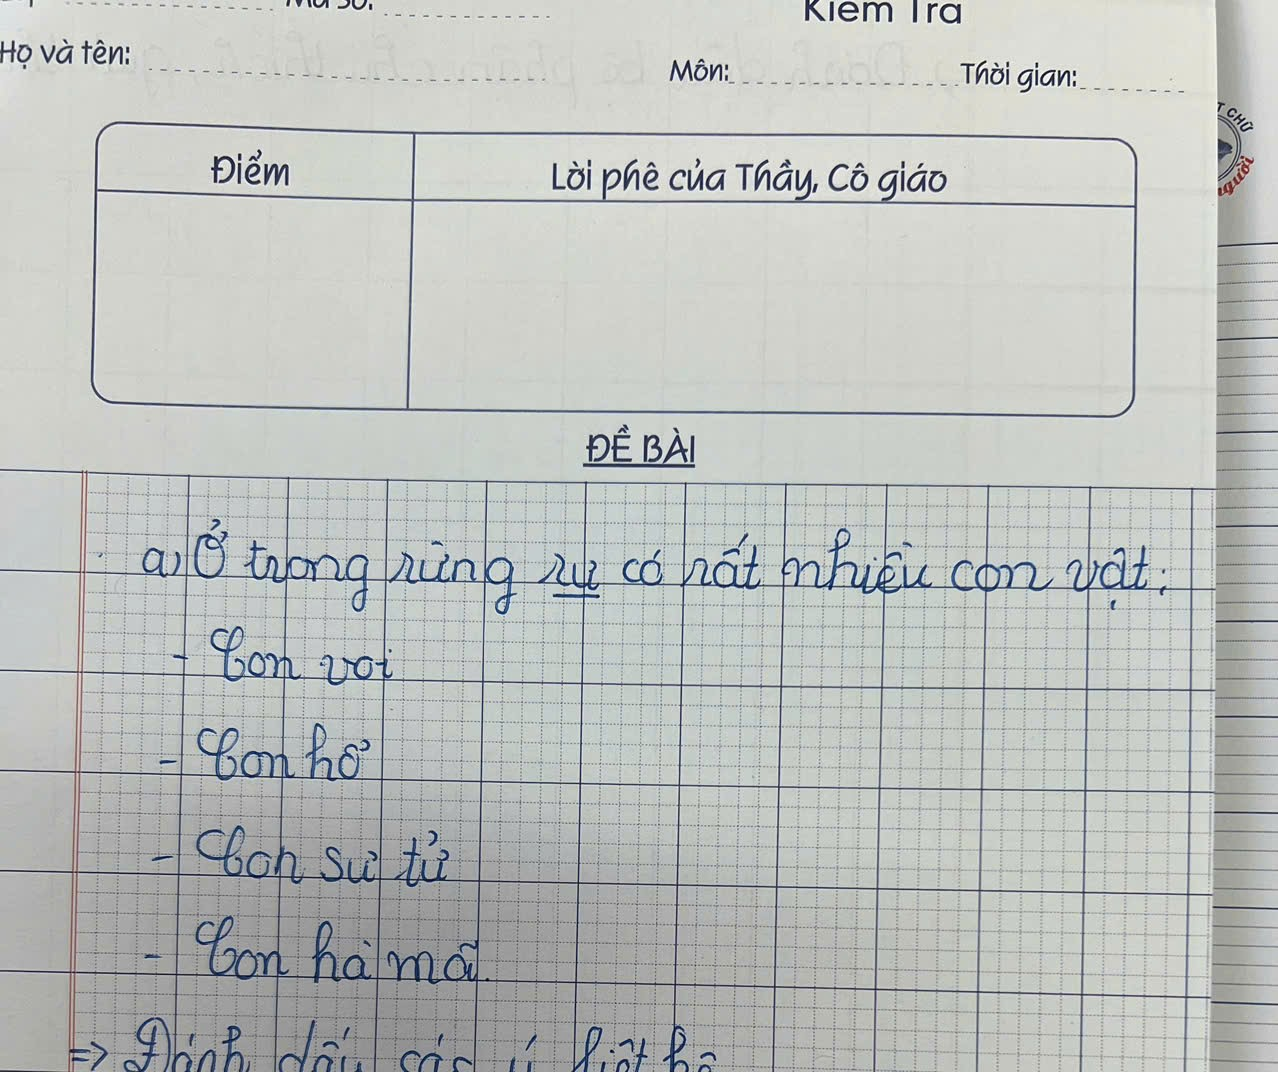 Mã số:
Kiểm Tra
Họ và tên:
Môn:
Thời gian:
T CHỮ
người
Điểm
Lời phê của Thầy, Cô giáo
ĐỀ BÀI
a) Ở trong rừng sự có rất nhiều con vật:
- Con voi
- Con hổ
- Con sư tử
- Con hà mã.
=> Đánh dấu các ý liệt kê